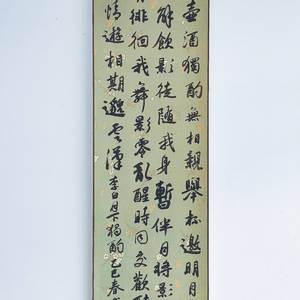 壺酒獨酌無相親舉杯邀明月
解飲影徒隨我身暫伴月將影
徘徊我舞影零亂醒時同交歡
情遊相期邈雲漢李白月下獨酌乙巳春